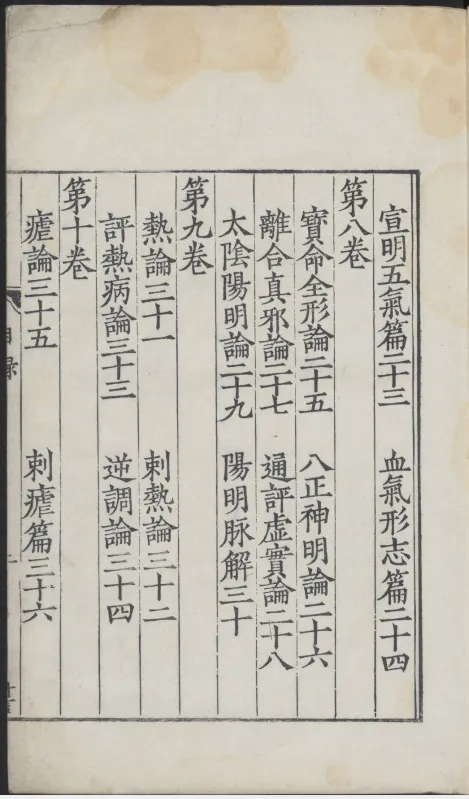 宣明五氣篇二十三　血氣形志篇二十四
第八卷
寶命全形論二十五　八正神明論二十六
離合真邪論二十七　通評虛實論二十八
太陰陽明論二十九　陽明脉解三十
第九卷
熱論三十一　刺熱論三十二
評熱病論三十三　逆調論三十四
第十卷
瘧論三十五　刺瘧篇三十六
目録